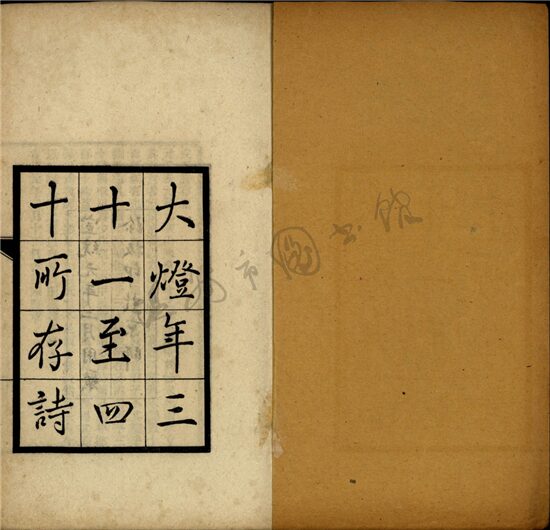 大燈年三
十一至四
十所存詩